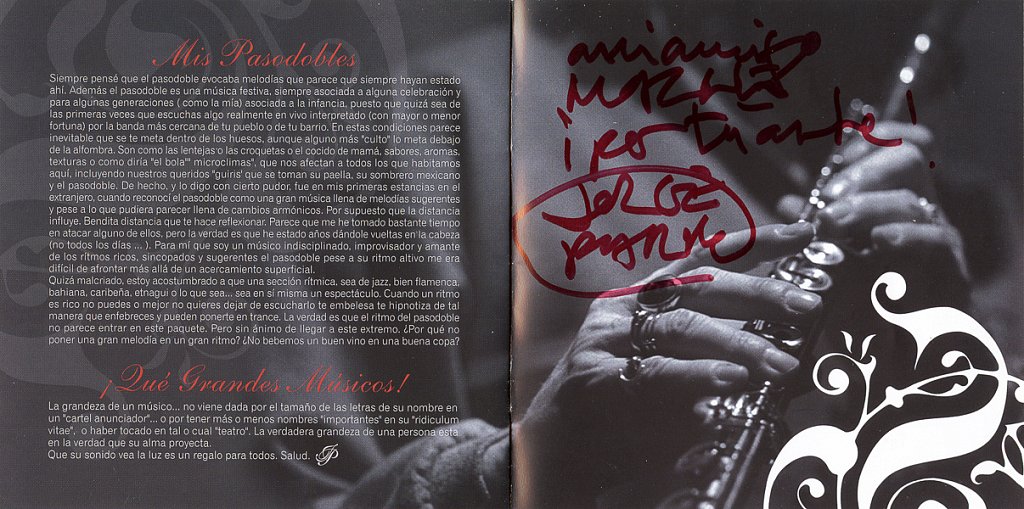 Mis Pasodobles
Siempre pensé que el pasodoble evocaba melodías que parece que siempre hayan estado
ahí. Además el pasodoble es una música festiva, siempre asociada a alguna celebración y
para algunas generaciones ( como la mía) asociada a la infancia, puesto que quizá sea de
las primeras veces que escuchas algo realmente en vivo interpretado (con mayor o menor
fortuna) por la banda más cercana de tu pueblo o de tu barrio. En estas condiciones parece
inevitable que se te meta dentro de los huesos, aunque alguno más "culto" lo meta debajo
de la alfombra. Son como las lentejas o las croquetas o el cocido de mamá, sabores, aromas,
texturas o como diría "el bola"" microclimas", que nos afectan a todos los que habitamos
aquí, incluyendo nuestros queridos "guiris' que se toman su paella, su sombrero mexicano
y el pasodoble. De hecho, y lo digo con cierto pudor, fue en mis primeras estancias en el
extranjero, cuando reconocí el pasodoble como una gran música llena de melodías sugerentes
y pese a lo que pudiera parecer llena de cambios armónicos. Por supuesto que la distancia
influye. Bendita distancia que te hace reflexionar. Parece que me he tomado bastante tiempo
en atacar alguno de ellos, pero la verdad es que he estado años dándole vueltas en la cabeza
(no todos los días ... ). Para mí que soy un músico indisciplinado, improvisador y amante
de los ritmos ricos, sincopados y sugerentes el pasodoble pese a su ritmo altivo me era
difícil de afrontar más allá de un acercamiento superficial.
Quizá malcriado, estoy acostumbrado a que una sección rítmica, sea de jazz, bien flamenca,
bahiana, caribeña, etnagui o lo que sea... sea en sí misma un espectáculo. Cuando un ritmo
es rico no puedes o mejor no quieres dejar de escucharlo te embelesa te hipnotiza de tal
manera que enfebreces y pueden ponerte en trance. La verdad es que el ritmo del pasodoble
no parece entrar en este paquete. Pero sin ánimo de llegar a este extremo. ¿Por qué no
poner una gran melodía en un gran ritmo? ¿No bebemos un buen vino en una buena copa?
¡Qué Grandes Músicos!
La grandeza de un músico... no viene dada por el tamaño de las letras de su nombre en
un "cartel anunciador"... o por tener más o menos nombres "importantes" en su "ridiculum
vitae", o haber tocado en tal o cual "teatro". La verdadera grandeza de una persona está
en la verdad que su alma proyecta.
Que su sonido vea la luz es un regalo para todos. Salud. JP
a mi amigo
¡por tu arte!
JORGE
PARDO